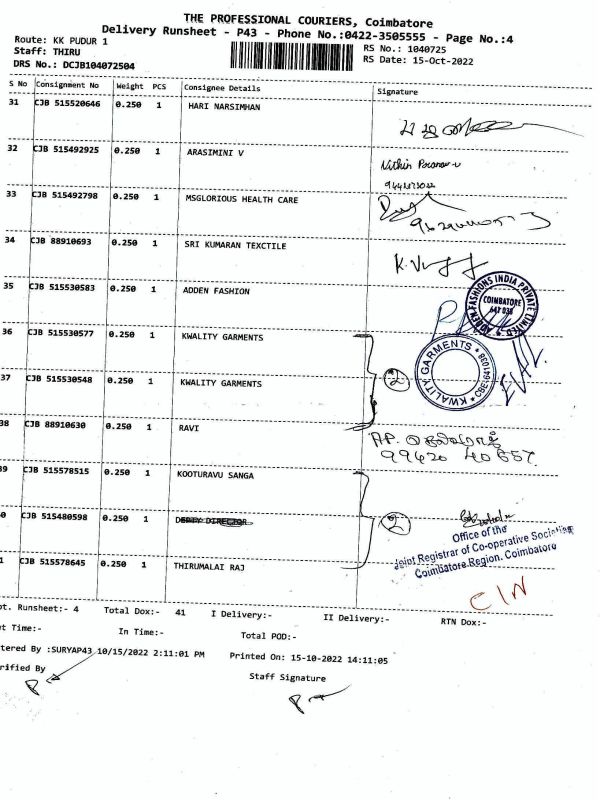 THE PROFESSIONAL COURIERS, Coimbatore
Delivery Runsheet - P43 - Phone No.:0422-3505555 - Page No.:4
Route: KK PUDUR 1
RS No.: 1040725
Staff: THIRU
RS Date: 15-Oct-2022
DRS No.: DCJB104072504
S No Consignment No Weight PCS Consignee Details Signature
31 CJB 515520646 0.250 1 HARI NARSIMHAN
32 CJB 515492925 0.250 1 ARASIMINI V
Nithin
33 CJB 515492798 0.250 1 MSGLORIOUS HEALTH CARE
34 CJB 88910693 0.250 1 SRI KUMARAN TEXCTILE
35 CJB 515530583 0.250 1 ADDEN FASHION
ADDEN FASHIONS INDIA PRIVATE LIMITED
COIMBATORE
641 038
36 CJB 515530577 0.250 1 KWALITY GARMENTS
KWALITY GARMENTS * CBE-641038 *
37 CJB 515530548 0.250 1 KWALITY GARMENTS
2
38 CJB 88910630 0.250 1 RAVI
99420 40657.
39 CJB 515578515 0.250 1 KOOTURAVU SANGA
0 CJB 515480598 0.250 1 DEPTY DIRECTOR
2
Office of the
Joint Registrar of Co-operative Societies
Coimbatore Region. Coimbatore
1 CJB 515578645 0.250 1 THIRUMALAI RAJ
C/N
ot. Runsheet:- 4 Total Dox:- 41 I Delivery:- II Delivery:- RTN Dox:-
t Time:- In Time:- Total POD:-
tered By :SURYAP43 10/15/2022 2:11:01 PM Printed On: 15-10-2022 14:11:05
rified By
Staff Signature